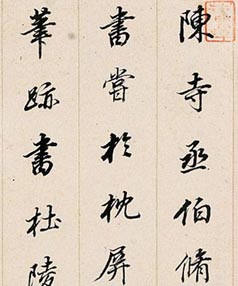 陳寺丞伯脩
書嘗於枕屏
華跡書杜陵